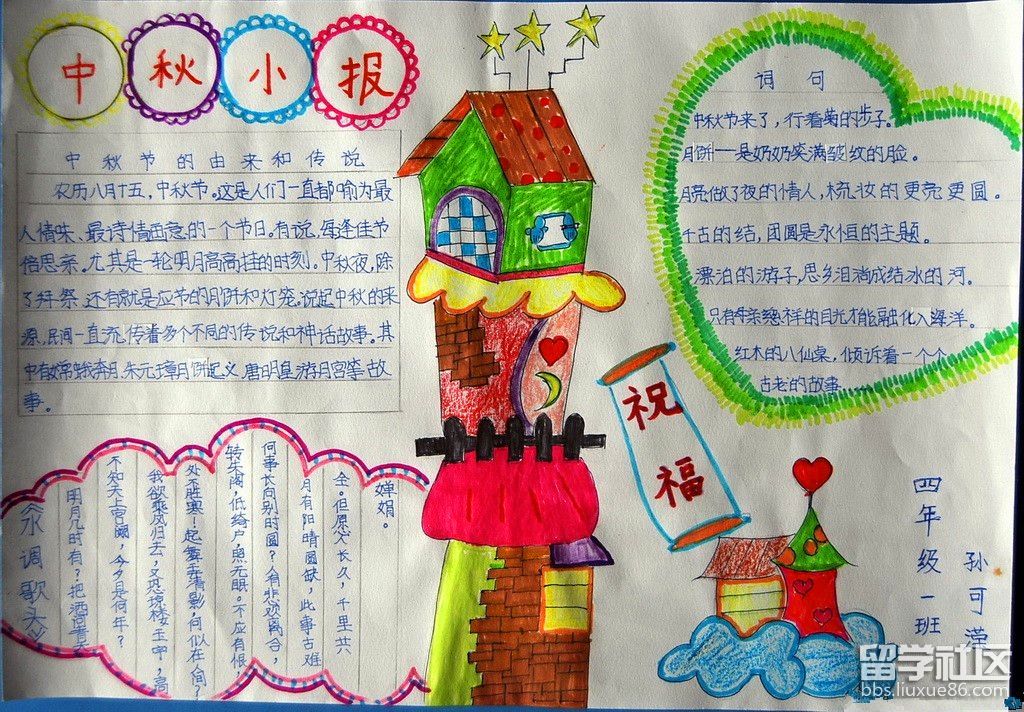 中秋小报
中秋节的由来和传说
农历八月十五，中秋节。这是人们一直都喻为最
人情味、最诗情画意的一个节日。有说，每逢佳节
倍思亲。尤其是一轮明月高高挂的时刻。中秋夜，除
了拜祭，还有就是应节的月饼和灯笼。说起中秋的来
源，民间一直流传着多个不同的传说和神话故事。其
中有嫦娥奔月、朱元璋月饼起义、唐明皇游月宫等故
事。
词句
中秋节来了，行着菊的步子。
月饼——是奶奶笑满皱纹的脸。
月亮做了夜的情人，梳妆的更亮更圆。
千古的结，团圆是永恒的主题。
漂泊的游子，思乡泪淌成结冰的河。
只有母亲慈祥的目光才能融化入海洋。
红木的八仙桌，倾诉着一个个
古老的故事……
祝福
水调歌头
明月几时有？把酒问青天
不知天上宫阙，今夕是何年？
我欲乘风归去，又恐琼楼玉宇，高
处不胜寒！起舞弄清影，何似在人间？
转朱阁，低绮户，照无眠。不应有恨
何事长向别时圆？人有悲欢离合，
月有阴晴圆缺，此事古难
全。但愿人长久，千里共
婵娟。
四年级一班
孙可滢
留学社区
bbs.liuxue86.com